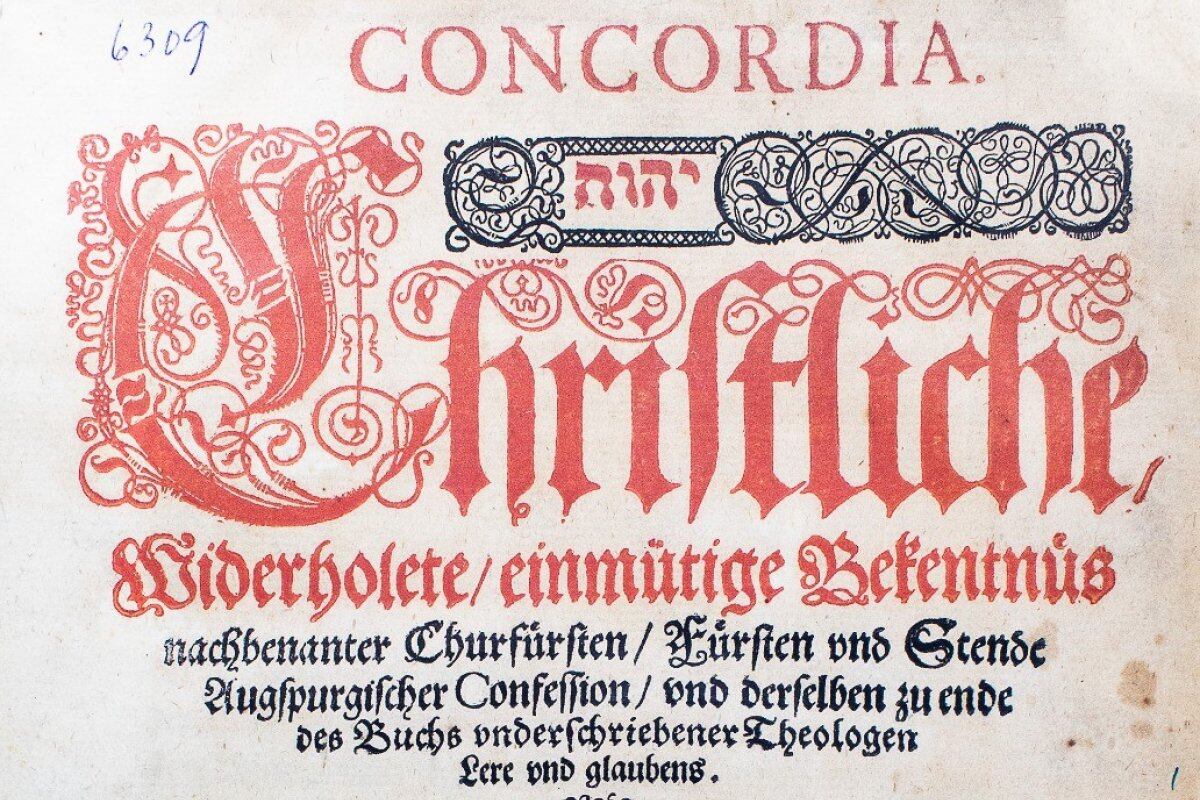 6309
CONCORDIA.
יהוה
Christliche,
Widerholete/einmütige Bekentnüs
nachbenanter Churfürsten/ Fürsten vnd Stende
Augspurgischer Confession/ vnd derselben zu ende
des Buchs vnderschriebener Theologen
Lere vnd glaubens.
1